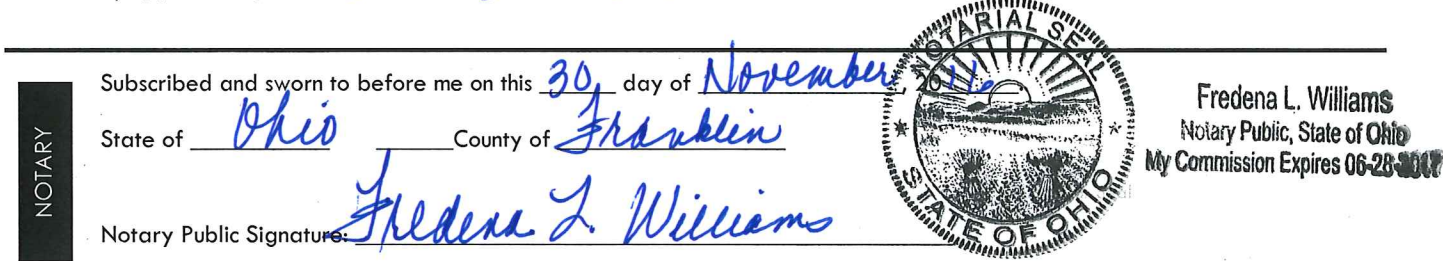 Subscribed and sworn to before me on this 30 day of November, 2016
State of Ohio County of Franklin
Notary Public Signature: Fredena L. Williams
NOTARY
NOTARIAL SEAL
STATE OF OHIO
Fredena L. Williams
Notary Public, State of Ohio
My Commission Expires 06-28-2017